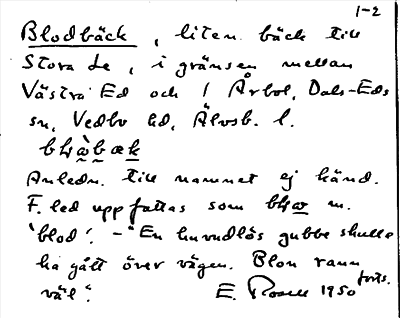 1-2
Blodbäck, liten bäck till
Stora Le, i gränsen mellan
Västra Ed och / Årbol, Dals-Eds
sn, Vedbo hd, Älvsb. l.
Anledn. till namnet ej känd.
F. led uppfattas som m.
'blod'. - "En huvudlös gubbe skulle
ha gått över vägen. Blon rann
forts.
väl". E. 1950